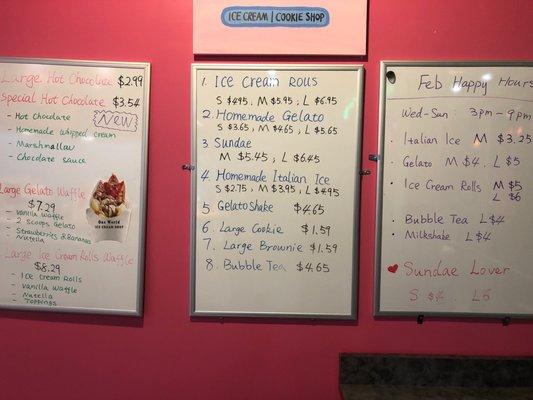 ICE CREAM | COOKIE SHOP
Large Hot Chocolate $2.99
Special Hot Chocolate $3.54
- Hot Chocolate
NEW
- Homemade whipped cream
- Marshmallow
- Chocolate sauce
Large Gelato Waffle
$7.29
- Vanilla Waffle
- 2 Scoops Gelato
- Strawberries & Bananas
- Nutella
One World
ICE CREAM SHOP
Large Ice Cream Rolls Waffle
$8.29
- Ice Cream Rolls
- Vanilla Waffle
- Nutella
- Toppings
1. Ice Cream Rolls
S $4.95, M $5.95, L $6.95
2. Homemade Gelato
S $3.65, M $4.65, L $5.65
3 Sundae
M $5.45, L $6.45
4 Homemade Italian Ice
S $2.75, M $3.95, L $4.95
5 Gelato Shake $4.65
6. Large Cookie $1.59
7. Large Brownie $1.59
8. Bubble Tea $4.65
Feb Happy Hours
Wed-Sun: 3pm - 9pm
. Italian Ice M $3.25
. Gelato M $4. L $5
. Ice Cream Rolls M $5
L $6
. Bubble Tea L $4
. Milkshake L $4
Sundae Lover
S $4 L 6